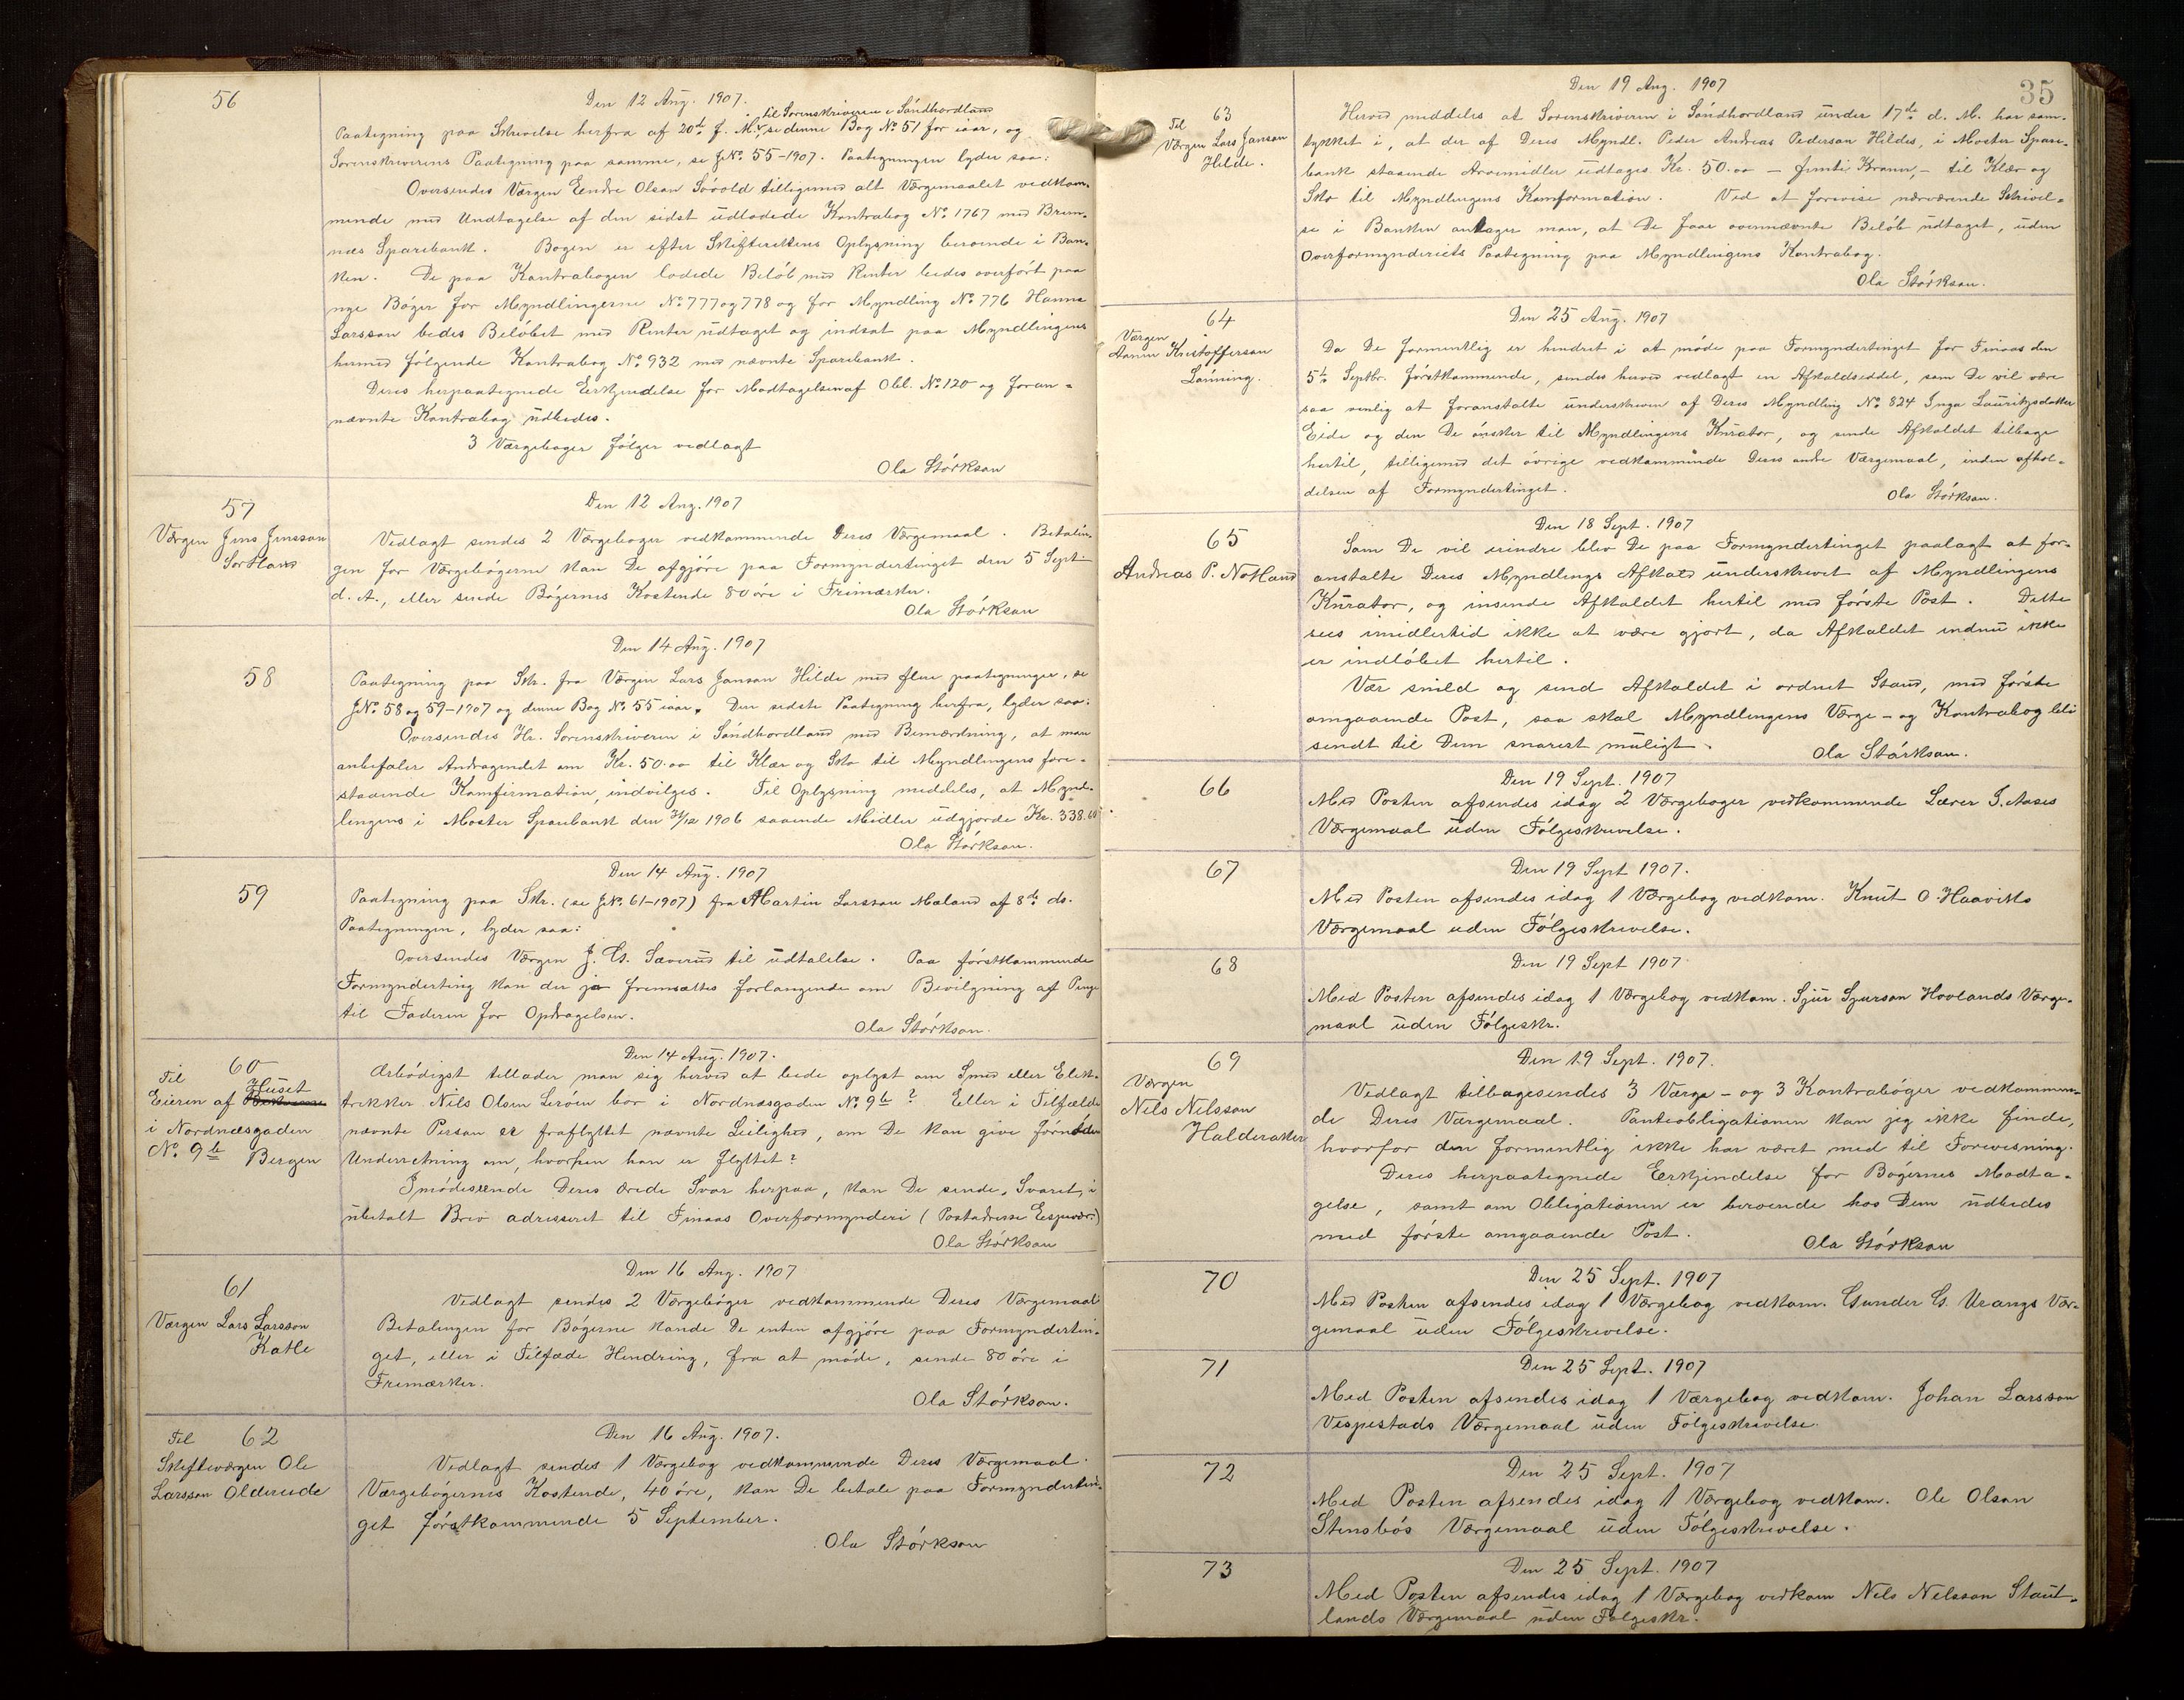 56
Den 12 Aug. 1907.
til Sorenskriveren i Söndhordland
Paategning paa Skrivelse herfra af 20de f. M., se denne Bog No. 51 for iaar, og
Sorenskriverens Paategning paa samme, se JNo. 55-1907. Paategningen lyder saa:
Oversendes Værgen Endre Olsen tilligemed alt Værgemaalet vedkom-
mende med Undtagelse af den sidst udlodede Kontrabog No. 1767 med Brem-
næs Sparebank. Bogen er efter Skifterettens Oplysning beroende i Ban-
ken. De paa Kontrabogen lodede Belöb med Renter bedes overfört paa
nye Böger for Myndlingerne No. 777 og 778 og for Myndling No. 776 Hanna
Larsson bedes Belöbet med Renter udtaget og indsat paa Myndlingens
hermed fölgende Kontrabog No. 932 med nævnte Sparebank.
Deres herpaategnede Erkjendelse for Modtagelsen af Obl. No. 120 og foran-
nævnte Kontrabog udbedes.
3 Værgeboger fölger vedlagt
Ola Störkson
57
Værgen Jens Jensson
Den 12 Aug. 1907
Vedlagt sendes 2 Værgeboger vedkommende Deres Værgemaal. Betalin-
gen for Værgebögerne kan De afgjöre paa Formyndertinget den 5 Sept
d. A., eller sende Bögernes Kostende 80 öre i Frimærker.
Ola Störkson
58
Den 14 Aug. 1907
Paategning paa Skr. fra Værgen Lars Janson Hilde med flere paategninger, se
JNo. 58 og 59-1907 og denne Bog No. 55 iaar. Den sidste Paategning herfra, lyder saa:
Oversendes Hr. Sorenskriveren i Söndhordland med Bemærdning, at man
anbefaler Andragendet om Kr. 50.00 til Klær og Sko til Myndlingens fore-
staaende Konfirmation, indvilges. Til Oplysning meddeles, at Mynd-
lingens i Moster Sparebank den 31/12 1906 saaende Midler udgjorde Kr. 338.
Ola Störkson.
59
Den 14 Aug. 1907
Paategning paa Skr. (se JNo. 61-1907) fra Martin Larsson Mæland af 8de ds.
Paategningen, lyder saa:
Oversendes Værgen J. G. Sæverud til udtalelse. Paa förstkommende
Formynderting kan der ja fremsættes forlangende om Bevilgning af Penge
til Faderen for Opdragelsen.
Ola Störkson.
60
Til
Eieren af Huset
i Nordnæsgaden
No. 9b Bergen
Den 14 Aug. 1907.
Ærbödigst tillader man sig herved at bede oplyst om Smed eller Elek-
trikker Nils Olsen Leröen bor i Nordnæsgaden No. 9b? Eller i Tilfælde
nævnte Person er fraflyttet nævnte Leilighed, om De kan give fornöden
Underretning om, hvorhen han er flyttet?
Imödeseende Deres ærede Svar herpaa, kan De sende, Svaret, i
ubetalt Brev adresseret til Finaas Overformynderi (Postadresse Espevær.)
Ola Störkson
61
Værgen Lars Larsson
Katle
Den 16 Aug. 1907
Vedlagt sendes 2 Værgeböger vedkommende Deres Værgemaal
Betalingen for Bögerne kande De enten afgjöre paa Formynderтin-
get, eller i Tilfæde Hindring, fra at möde, sende 80 öre i
Frimærker.
Ola Störkson.
62
Til
Skifteværgen Ole
Larsson Oldereide
Den 16 Aug. 1907.
Vedlagt sendes 1 Værgebog vedkommende Deres Værgemaal.
Værgebogernes Kostende, 40 öre, kan De betale paa Formynderтin-
get förstkommende 5 September.
Ola Störkson
35
63
Til
Værgen Lars Janson
Hilde.
Den 19 Aug. 1907
Herved meddeles at Sorenskriveren i Söndhordland under 17de d. M. har sam-
tykket i, at der af Deres Myndl. Peder Andreas Pederson Hildes, i Moster Spare-
bank staaende Arvemidler udtages Kr. 50.00 - femti Kroner,- til Klær og
Sko til Myndlingens Konformation. Ved at forevise nærværende Skrivel-
se i Banken antager man, at De faar ovennævnte Belöb udtaget, uden
Overformynderiets Paategning paa Myndlingens Kontrabog.
Ola Störkson.
64
Værgen
Kristofferson
Lönning.
Den 25 Aug. 1907
Da De formentlig er hindret i at möde paa Formyndertinget for Finaas den
5te Septbr. förstkommende, sendes herved vedlagt en Afkaldseddel, som De vil være
saa venlig at foranstalte underskreven af Deres Myndling No. 824 Inga Lauritzsdatter
Eide og den De önsker til Myndlingens Kurator, og sende Afkaldet tilbage
hertil, tilligemed det övrige vedkommende Deres andre Værgemaal, inden afhol-
delsen af Formyndertinget.
Ola Störkson.
65
Andreas P. Notland
Den 18 Sept. 1907
Som De vil erindre blev De paa Formyndertinget paalagt at for-
anstalte Deres Myndlings Afkald underskrevet af Myndlingens
Kurator, og insende Afkaldet hertil med förste Post. Dette
sees imidlertid ikke at være gjort, da Afkaldet endnu ikke
er indlöbet hertil.
Vær snild og send Afkaldet i ordnet Stand, med förste
omgaaende Post, saa skal Myndlingens Værge- og Kontrabog bli
sendt til Dem snarest muligt.
Ola Störkson.
66
Den 19 Sept. 1907
Med Posten afsendes idag 2 Værgeboger vedkommende Lærer S. Aases
Værgemaal uden Fölgeskrivelse.
67
Den 19 Sept 1907.
Med Posten afsendes idag 1 Værgebog vedkom. Knut O. Haaviks
Værgemaal uden Fölgeskrivelse.
68
Den 19 Sept 1907
Med Posten afsendes idag 1 Værgebog vedkom. Sjur Sjurson Hovlands Værge-
maal uden Fölgeskr.
69
Værgen
Nils Nilsson
Halderaker
Den 19 Sept. 1907.
Vedlagt tilbagesendes 3 Værge- og 3 Kontraböger vedkommen-
de Deres Værgemaal. Panteobligationen kan jeg ikke finde,
hvorfor den formentlig ikke har været med til Forevisning.
Deres herpaategnede Erkjendelse for Bögernes Modta-
gelse, samt om Obligationen er beroende hos Dem udbedes
med förste omgaaende Post.
Ola Störkson
70
Den 25 Sept. 1907
Med Posten afsendes idag 1 Værgebog vedkom. Gunder G. Urangs Vær-
gemaal uden Fölgeskrivelse.
71
Den 25 Sept. 1907
Med Posten afsendes idag 1 Værgebog vedkom. Johan Larsson
Vespestads Værgemaal uden Fölgeskrivelse.
72
Den 25 Sept. 1907
Med Posten afsendes idag 1 Værgebog vedkom. Ole Olson
Stensbös Værgemaal uden Fölgeskrivelse.
73
Den 25 Sept. 1907
Med Posten afsendes idag 1 Værgebog vedkom Nels Nelsson Staut-
lands Værgemaal uden Fölgeskr.